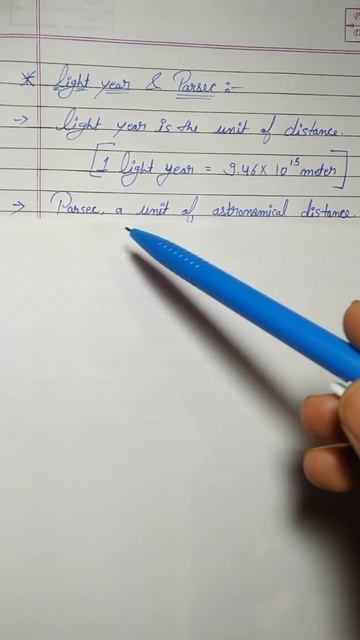 * Light year & Parsec :-
→ Light year is the unit of distance.
[1 light year = 9.46 X 10¹⁵ meter]
→ Parsec, a unit of astronomical distance.